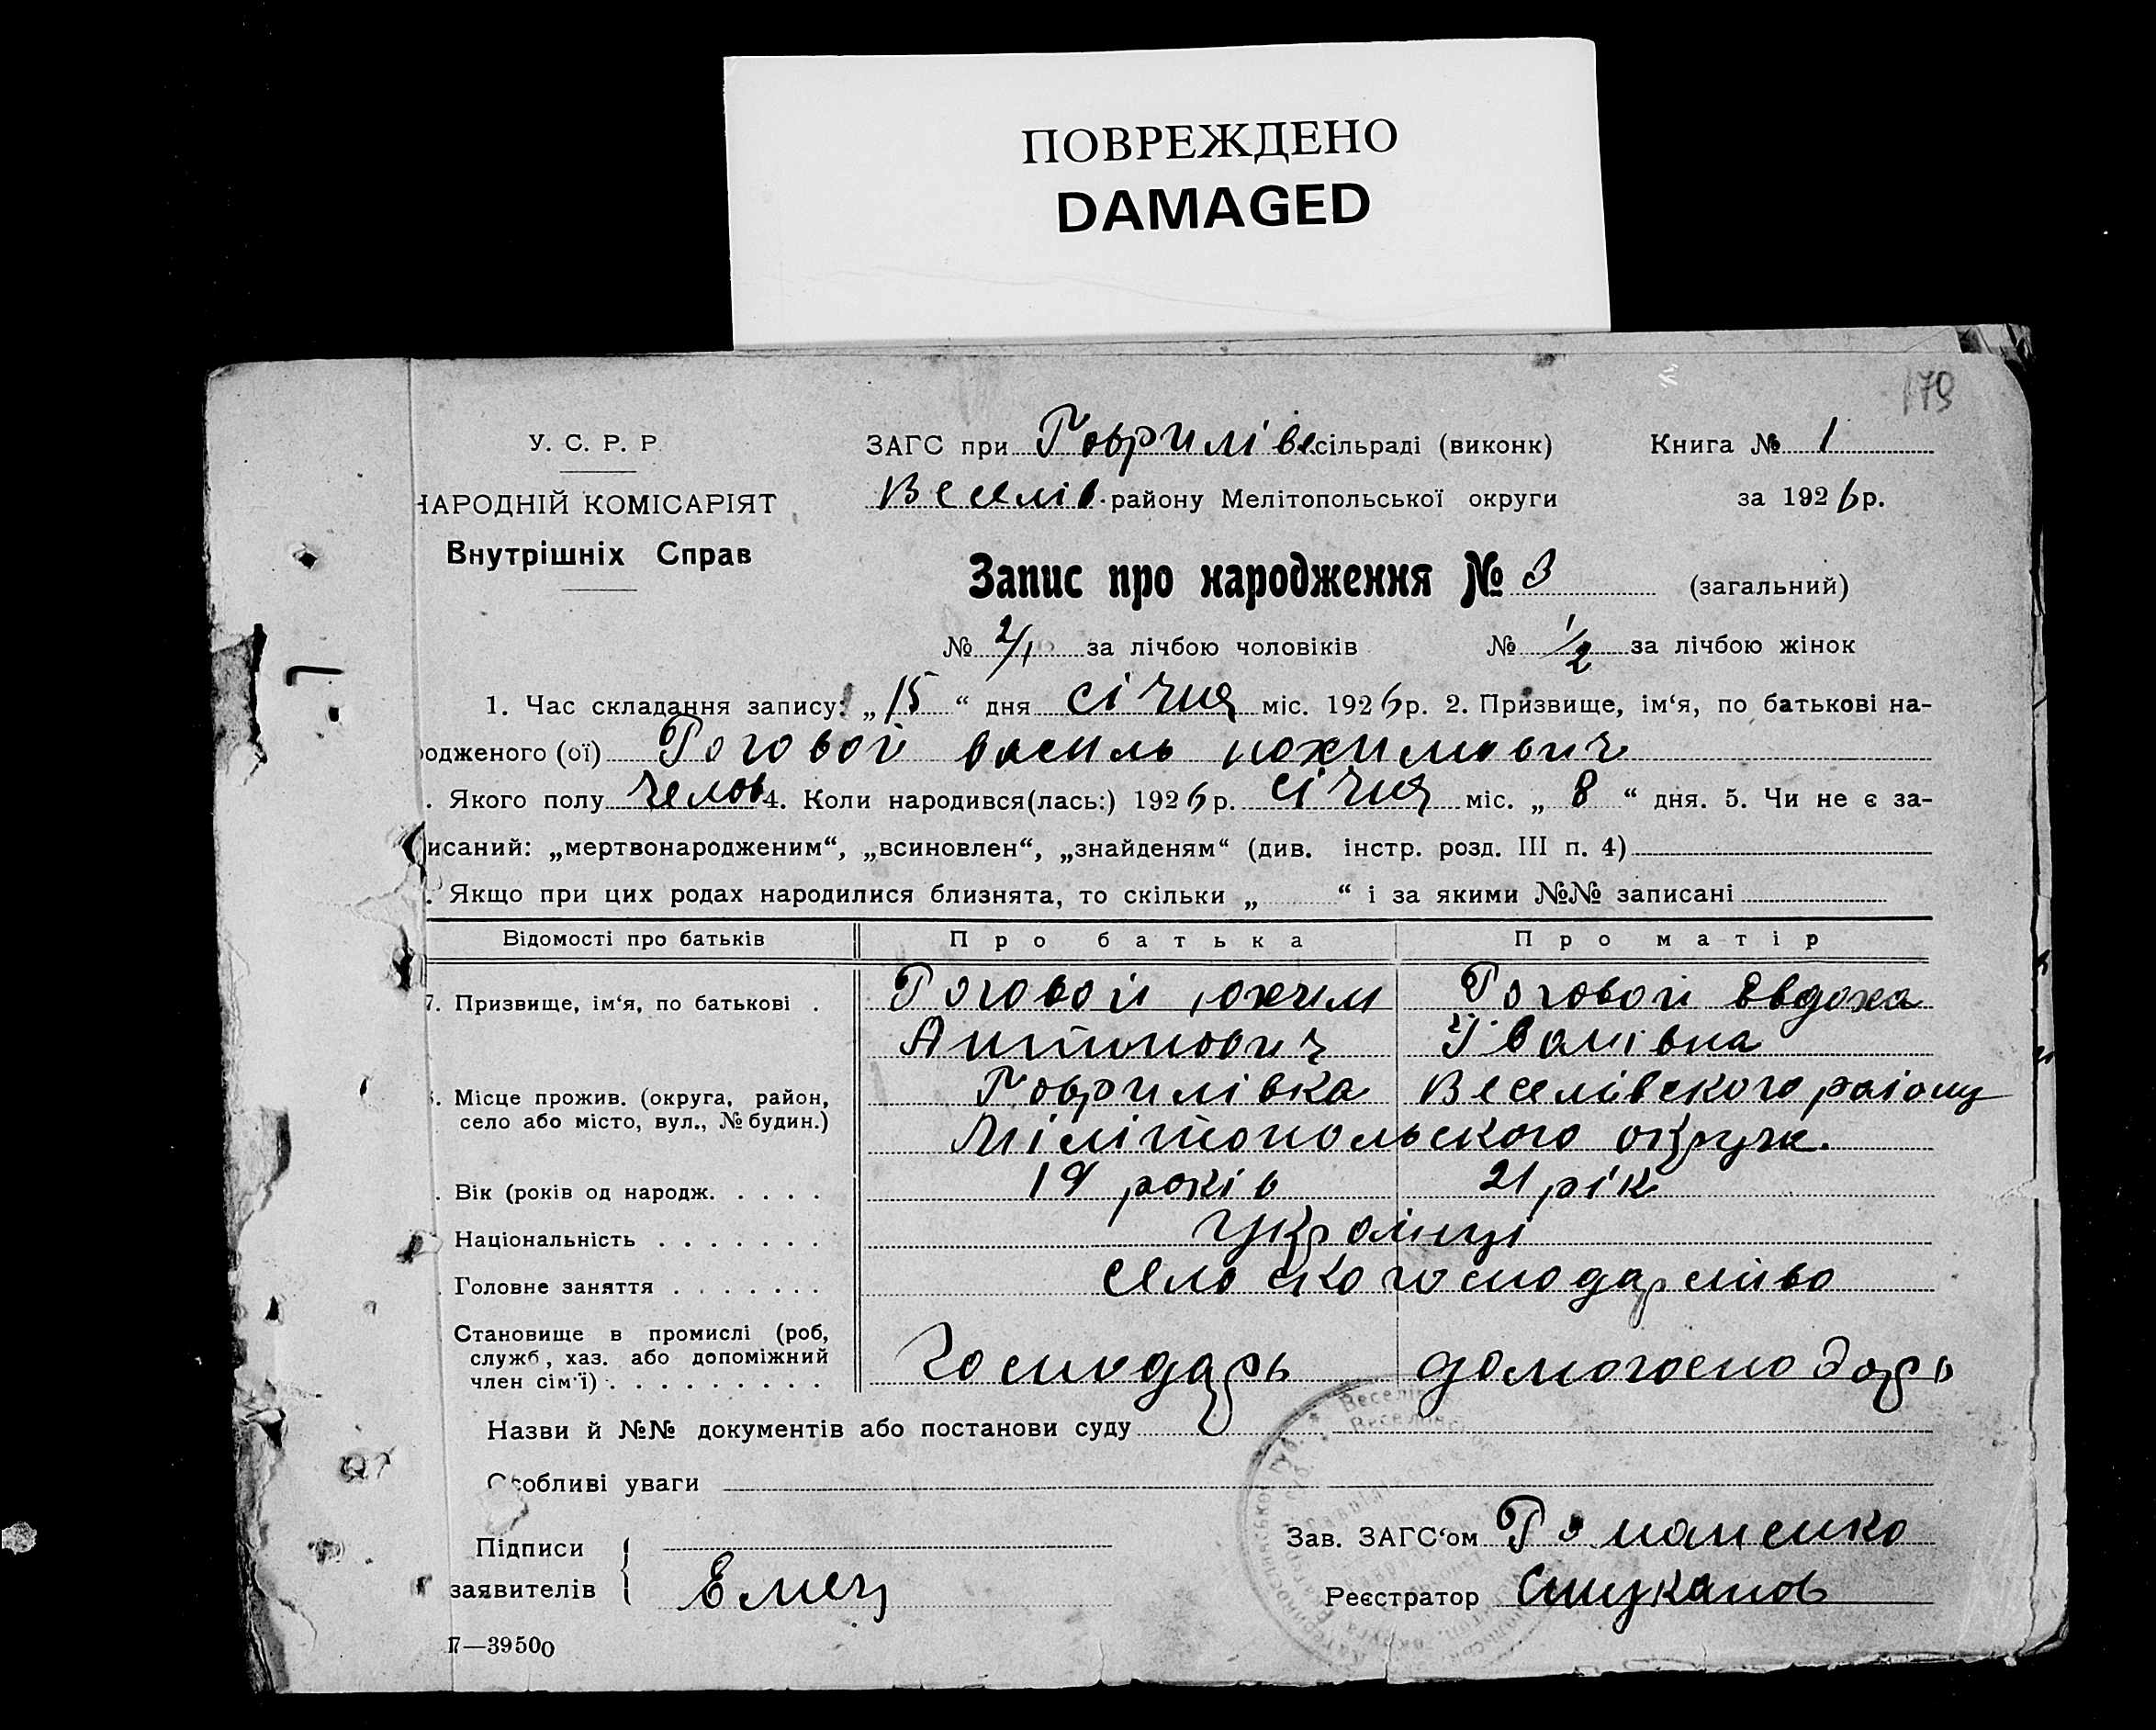 ПОВРЕЖДЕНО
DAMAGED
179
У. С. Р. Р.
НАРОДНІЙ КОМІСАРІЯТ
Внутрішніх Справ
ЗАГС при Гаврилівс. сільраді (виконк)
Веселів. району Мелітопольської округи
Книга № 1
за 1926 р.
Запис про народження № 3 (загальний)
№ 2/1 за лічбою чоловіків № 1/2 за лічбою жінок
1. Час складання запису: „15“ дня січня міс. 1926 р. 2. Призвище, ім‘я, по батькові на-
родженого (ої) Роговой василь иохимович
. Якого полу челов 4. Коли народився(лась:) 1926 р. січня міс. „8“ дня. 5. Чи не є за-
исаний: „мертвонародженим“, „всиновлен“, „знайденям“ (див. інстр. розд. III п. 4)
. Якщо при цих родах народилися близнята, то скільки „ “ і за якими №№ записані
Відомості про батьків Про батька Про матір
7. Призвище, ім‘я, по батькові . Роговой юхим Роговой Евдоха
Антинович Іванівна
. Місце прожив. (округа, район, Гаврилівка Веселівского раіону
село або місто, вул., № будин.) Мілітопольского округи.
. Вік (років од народж. . . . . 19 років 21 рік
Національність . . . . . . . Українці
. Головне заняття . . . . . . . село ско господарство
Становище в промислі (роб,
служб, хаз. або допоміжний Господарь домогосподарь
член сім‘ї) . . . . . . . . .
Назви й №№ документів або постанови суду
Особливі уваги
Підписи
заявителів Емец
Зав. ЗАГС‘ом Романенко
Реєстратор
П—39500